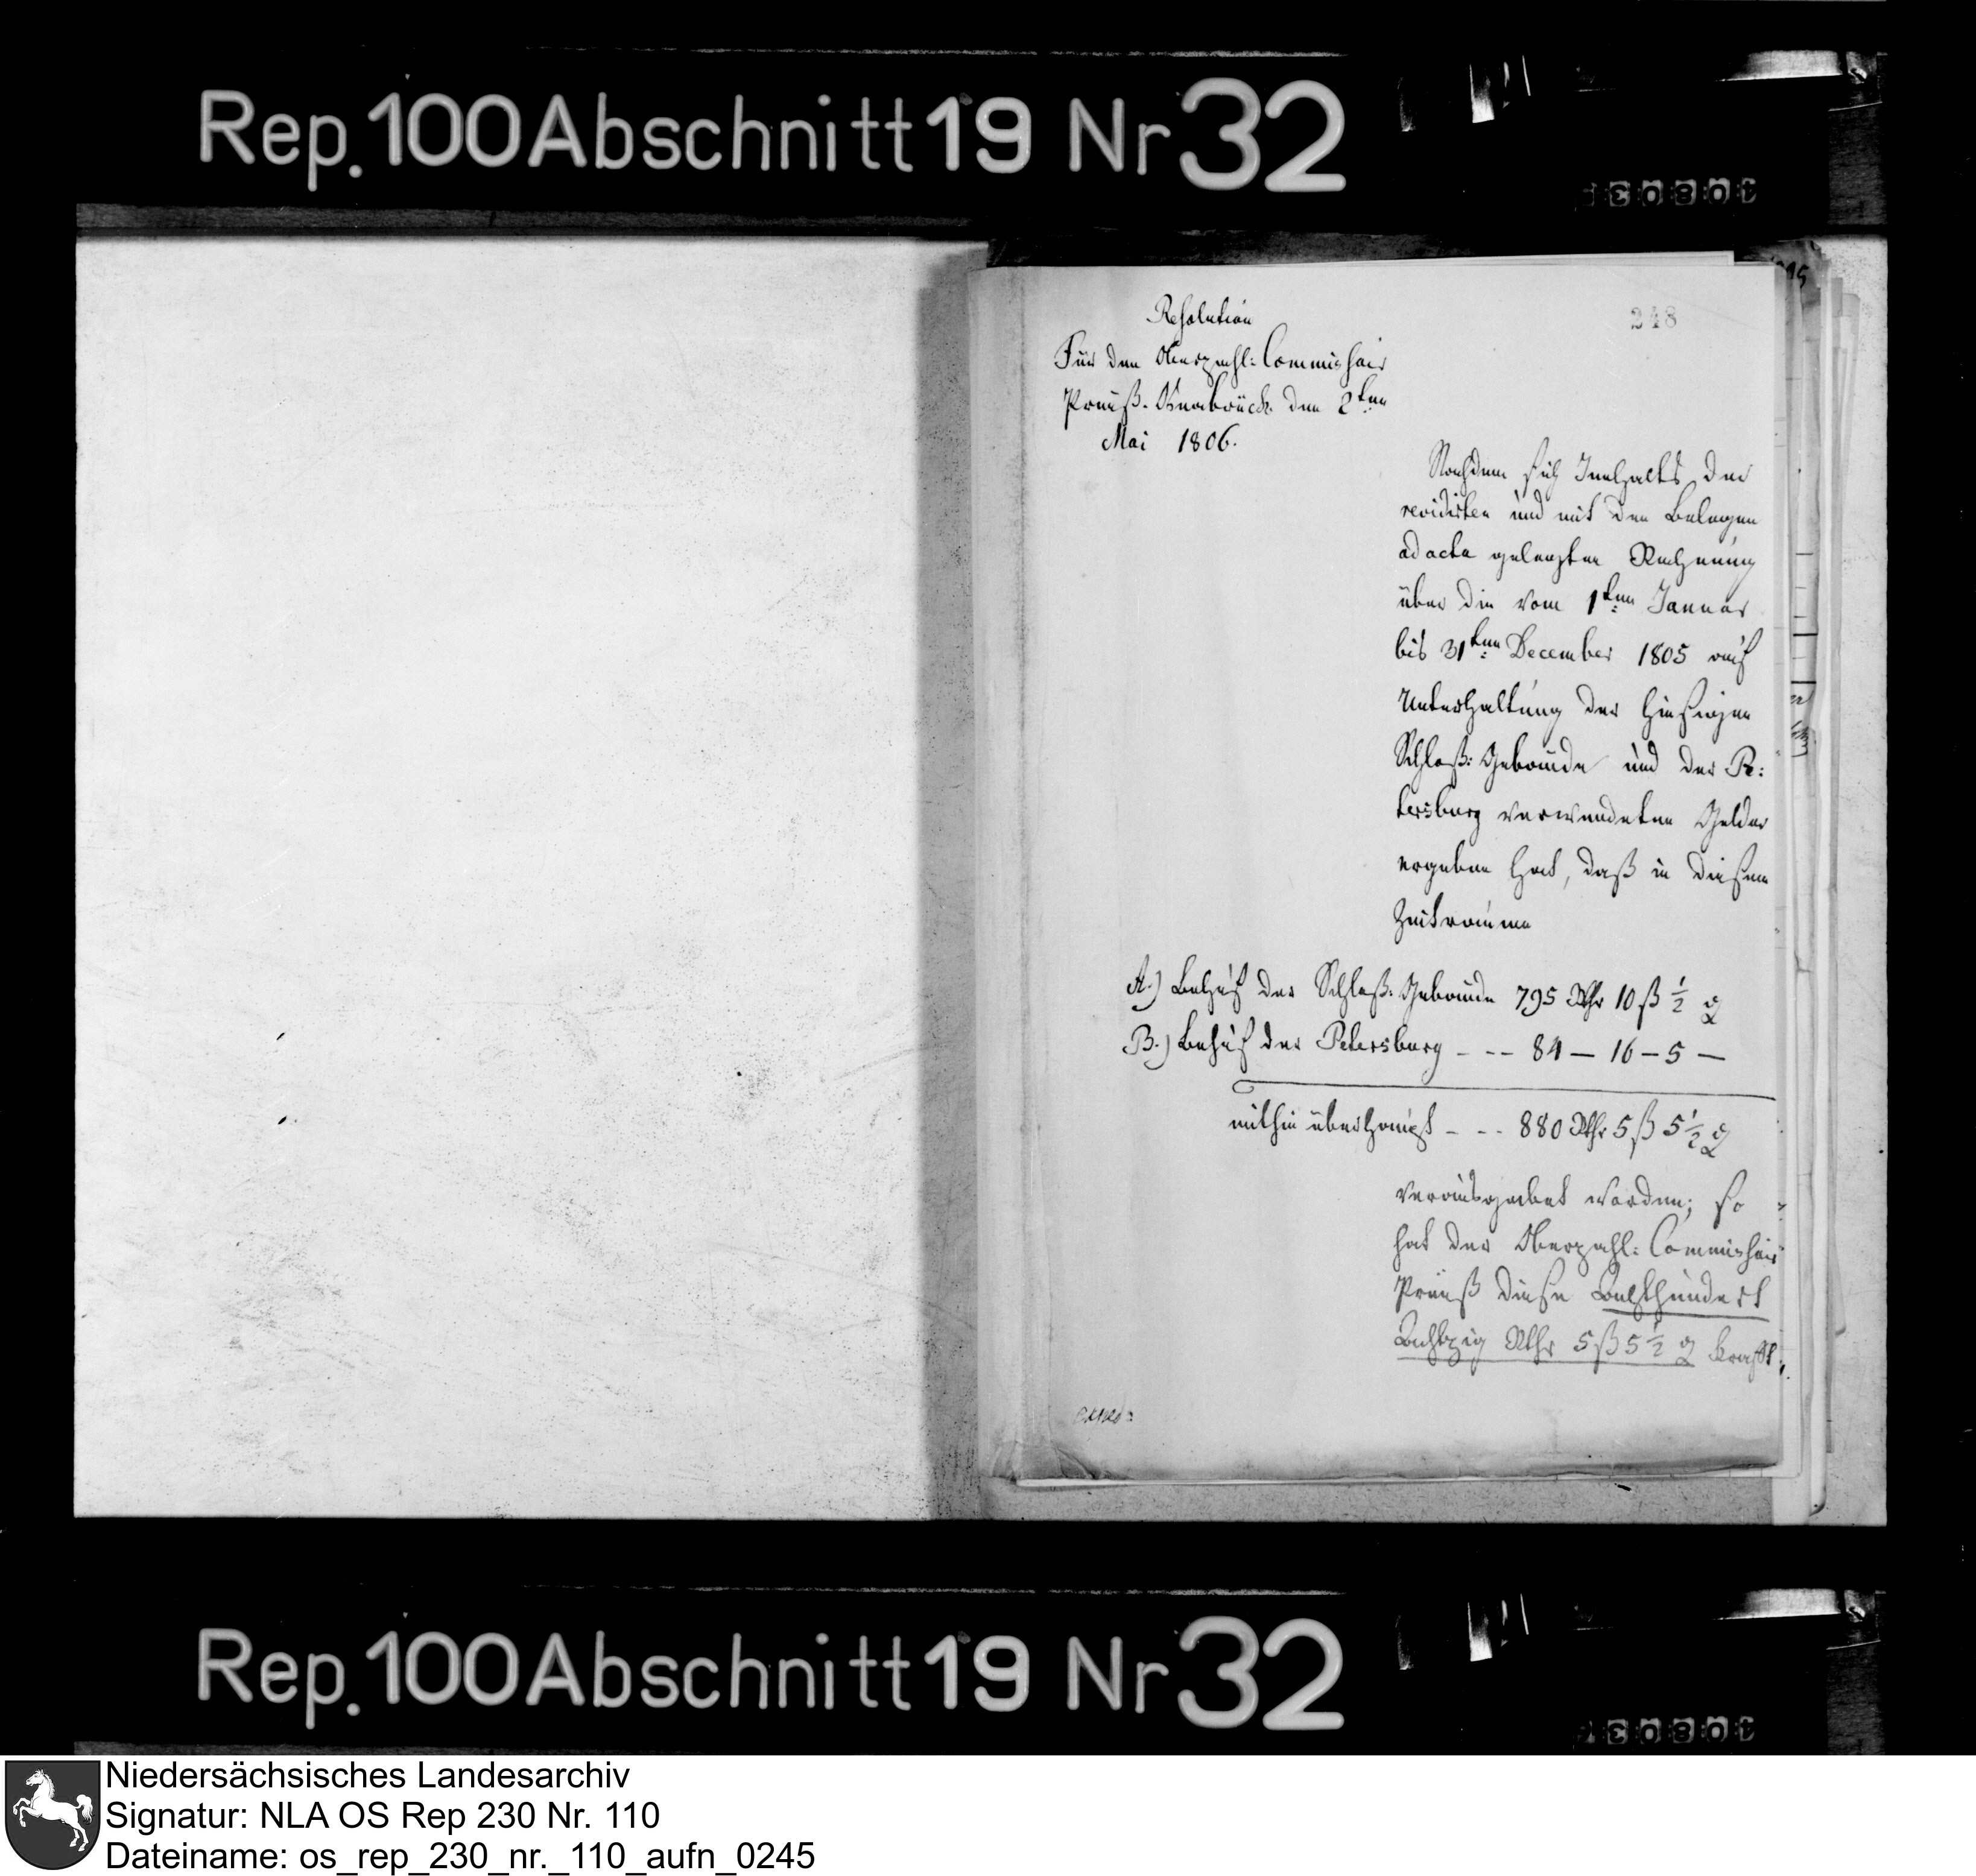 Rep.100 Abschnitt 19 Nr 32
248
Resolution
Für den Oberzahl: Commissair
Preuß. Osnabrück den 2ten
Mai 1806.
Nachdem sich Innhalts der
revidirten und mit den Belegen
ad acta gelegten Rechnung
über die vom 1ten Januar
bis 31ten December 1805 auf
Unterhaltung der hiesigen
Schloß: Gebäude und der Pe:
tersburg verwendeten Gelder
ergeben hat, daß in diesem
Zeitraume
A.) Behuf der Schloß: Gebäude 795 Rthr 10 ß ½ ₰
B.) Behuf der Petersburg - - - 84 — 16 — 5 —
mithin überhaupt - - - 880 Rthr 5 ß 5½ ₰
verausgabet worden; so
hat der Oberzahl: Commissair
Preuß diese Achthundert
Achtzig Rthr 5 ß 5½ ₰ kraft
exped:
Rep.100 Abschnitt 19 Nr 32
Niedersächsisches Landesarchiv
Signatur: NLA OS Rep 230 Nr. 110
Dateiname: os_rep_230_nr._110_aufn_0245